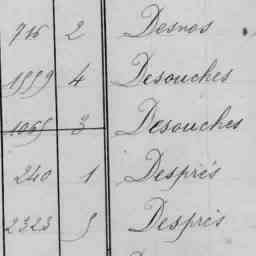 716 2 Desnos
1559 4 Desouches
1065 3 Desouches
240 1 Desprès
2323 5 Desprès